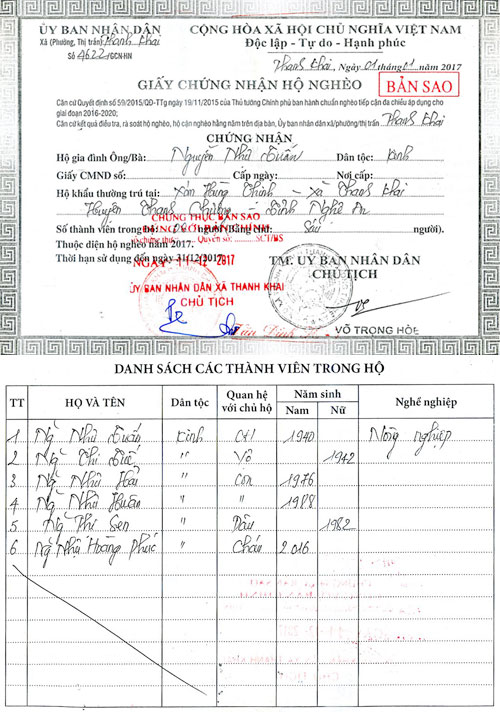 ỦY BAN NHÂN DÂN
Xã (Phường, Thị trấn) Thanh Khai
Số 4622/GCN-HN
CỘNG HÒA XÃ HỘI CHỦ NGHĨA VIỆT NAM
Độc lập - Tự do - Hạnh phúc
Thanh Khai, Ngày 01 tháng 01 năm 2017
GIẤY CHỨNG NHẬN HỘ NGHÈO
BẢN SAO
Căn cứ Quyết định số 59/2015/QĐ-TTg ngày 19/11/2015 của Thủ tướng Chính phủ ban hành chuẩn nghèo tiếp cận đa chiều áp dụng cho
giai đoạn 2016-2020;
Căn cứ kết quả điều tra, rà soát hộ nghèo, hộ cận nghèo hằng năm trên địa bàn, Ủy ban nhân dân xã/phường/thị trấn Thanh Khai
CHỨNG NHẬN
Hộ gia đình Ông/Bà: Nguyễn Nhữ Tuấn Dân tộc: Kinh
Giấy CMND số: Cấp ngày: Nơi cấp:
Hộ khẩu thường trú tại: Xóm Hưng Thịnh - Xã Thanh Khai
Huyện Thanh Chương - Tỉnh Nghệ An
Số thành viên trong hộ: 06 người (Bằng chữ: Sáu người).
CHỨNG THỰC BẢN SAO
ĐÚNG VỚI BẢN CHÍNH
Số chứng thực Quyển số: SCT/BS
Thuộc diện hộ nghèo năm 2017.
Thời hạn sử dụng đến ngày 31/12/2017
NGÀY 11-12-2017
TM. ỦY BAN NHÂN DÂN
CHỦ TỊCH
ỦY BAN NHÂN DÂN XÃ THANH KHAI
CHỦ TỊCH
VÕ TRỌNG HÒE
DANH SÁCH CÁC THÀNH VIÊN TRONG HỘ
TT HỌ VÀ TÊN Dân tộc Quan hệ với chủ hộ Năm sinh Nam Nữ Nghề nghiệp
1 Ng Nhữ Tuấn Kinh CH 1940 Nông nghiệp
2 Ng Thị " Vợ 1942
3 Ng Nhữ Hải " Con 1976
4 Ng Nhữ Huân " " 1988
5 Ng Thị Sen " Dâu 1982
6 Ng Nhữ Hoàng Phúc " Cháu 2016